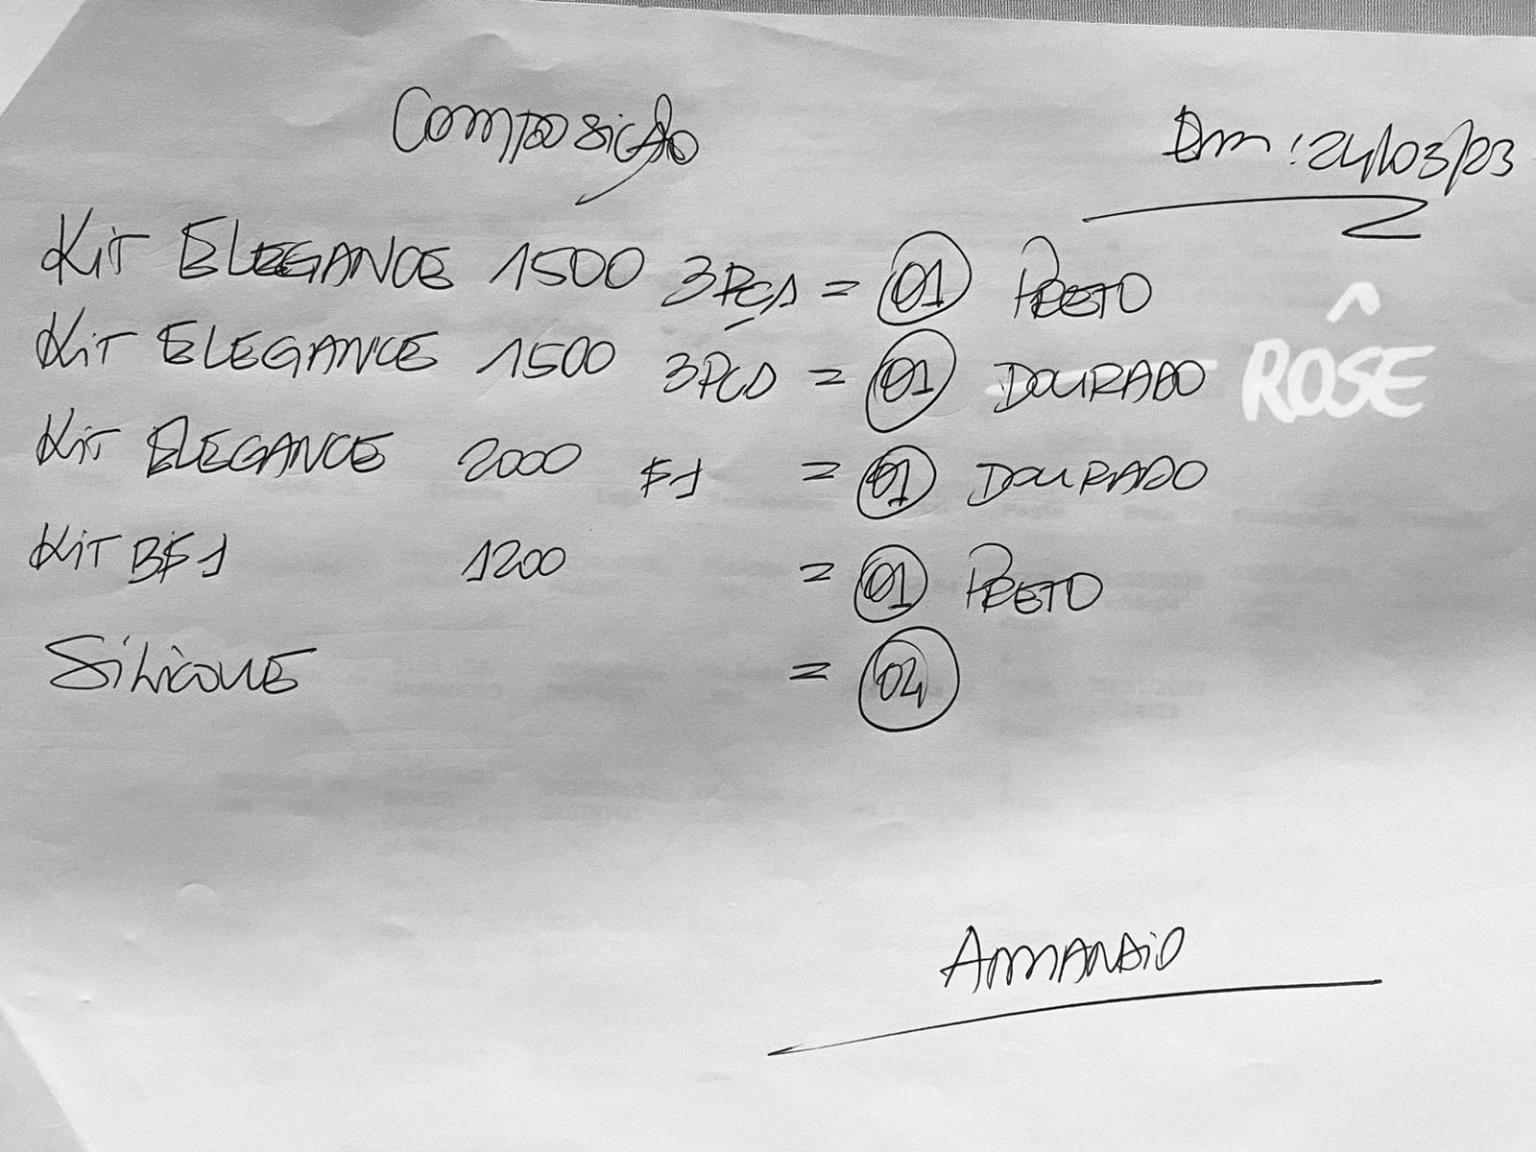 Composição
Em: 24/03/23
Kit ELEGANCE 1500 3PÇS = 01 PRETO
Kit ELEGANCE 1500 3PÇS = 01 DOURADO RÔSE
Kit ELEGANCE 2000 F1 = 01 DOURADO
Kit BF1 1200 = 01 PRETO
SiLiCONE = 04